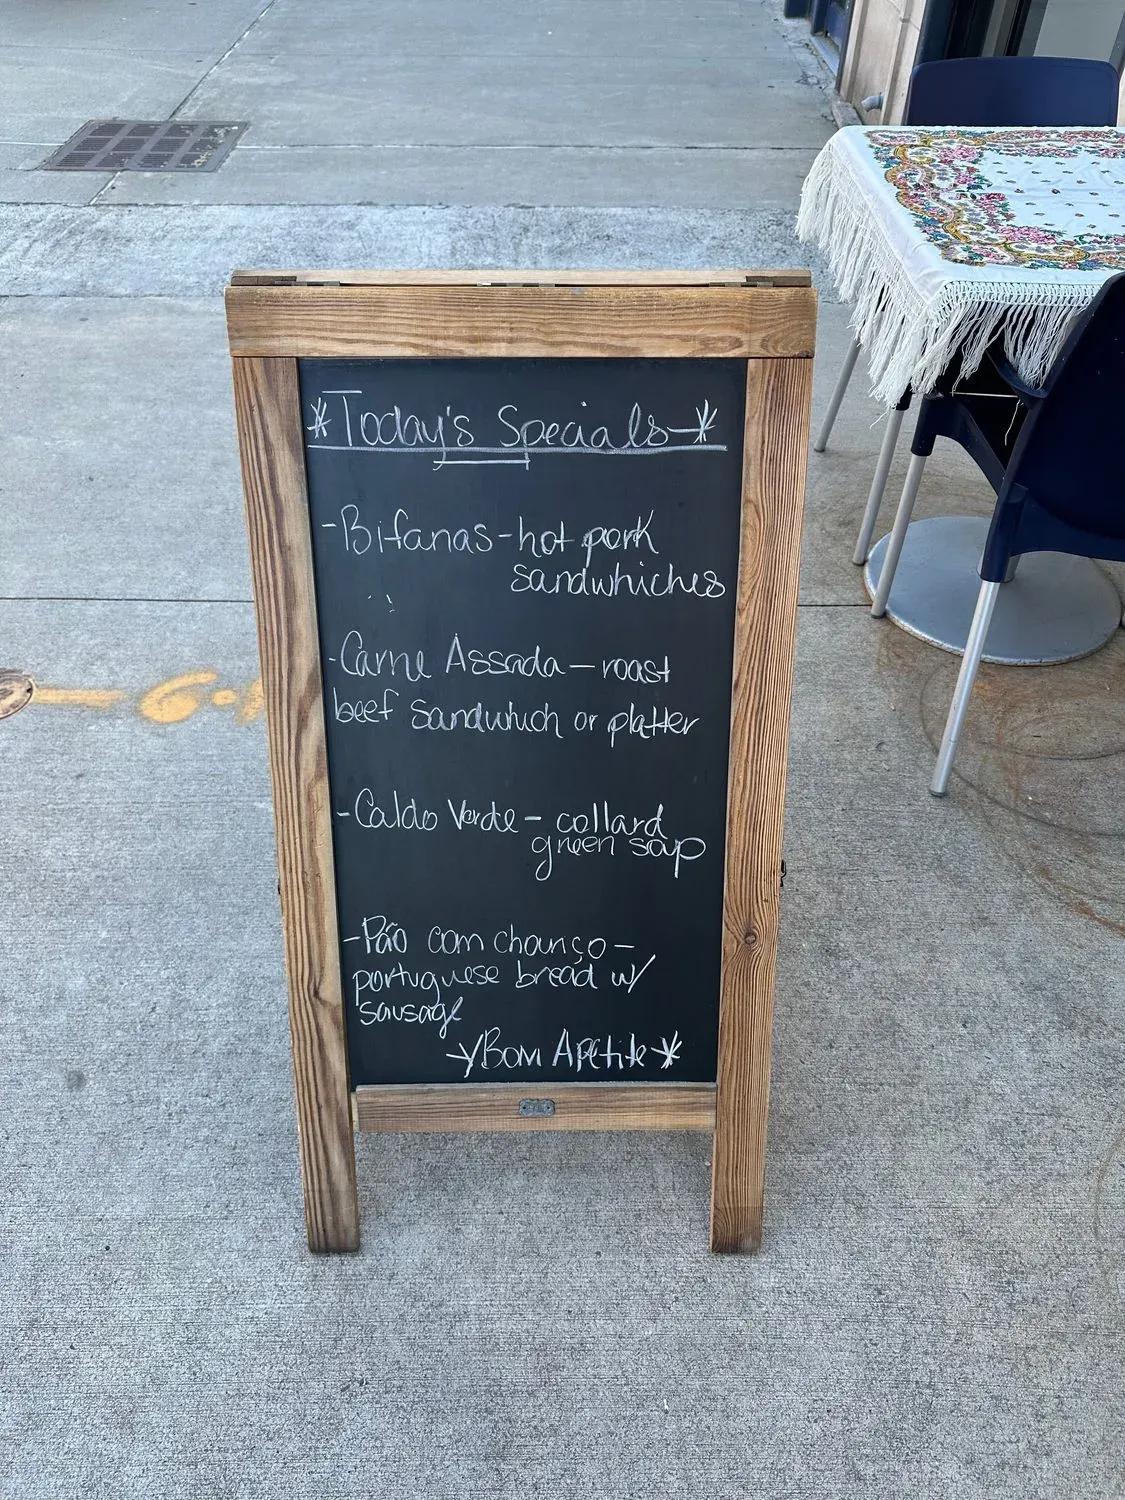 *Today's Specials*
-Bifanas-hot pork
sandwhiches
-Carne Assada-roast
beef sandwhich or platter
-Caldo Verde- collard
green soup
-Pão com chouriço-
portuguese bread w/
sausage
*Bom Apetite*